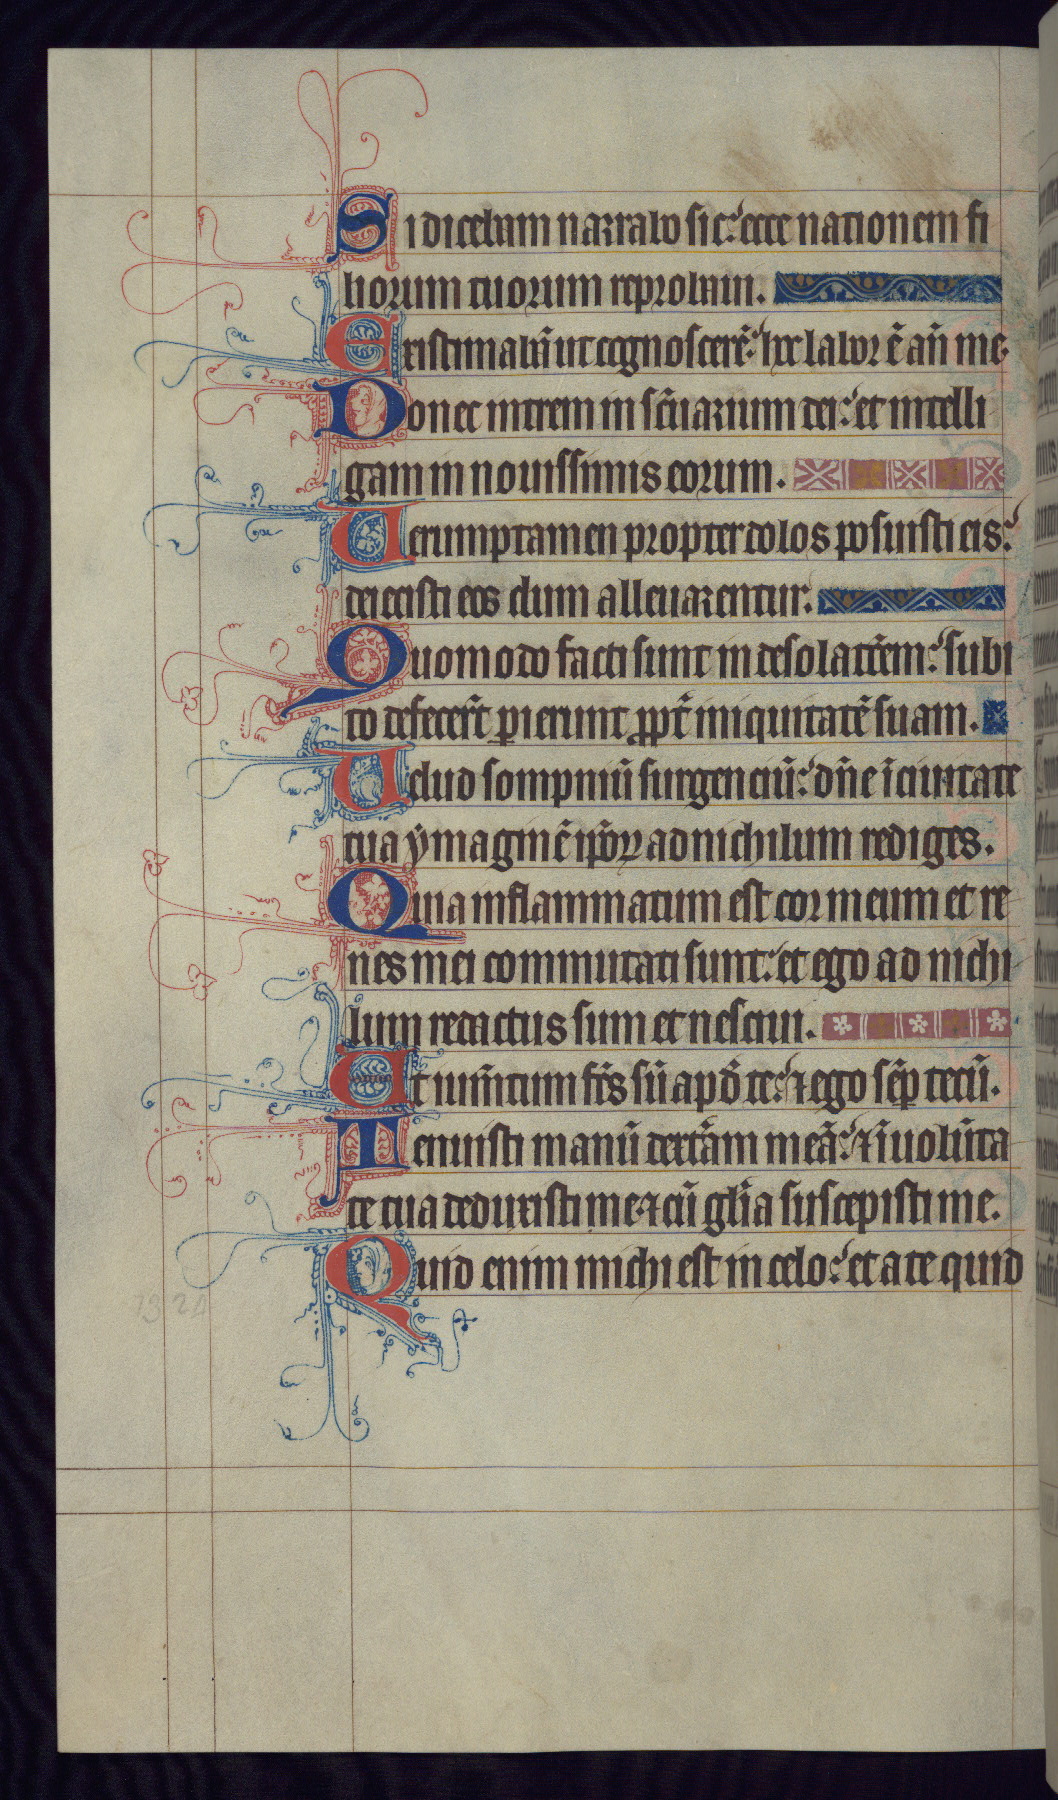 Si dicebam narrabo sic: ecce nationem fi
liorum tuorum reprobaui.
Existimabã ut cognoscerẽ: hoc labor ẽ añ me
Donec intrem in scũarium dei: et intelli
gam in nouissimis eorum.
Uerumptamen propter dolos posuisti eis:
deiecisti eos dum alleuarentur.
Quomodo facti sunt in desolatõem: subi
to defecerũt perierunt ppt̃ iniquitatẽ suam.
Uelud sompniũ surgenciũ: dñe ĩ ciuitate
tua ẏmaginẽ ipoꝝ ad nichilum rediges.
Quia inflammatum est cor meum et re
nes mei commutati sunt: et ego ad nichi
lum redactus sum et nesciui.
Ut iumẽtum fc̃s sũ apd̃ te: ⁊ ego sẽp tecũ.
Tenuisti manũ dextẽam meã: ⁊ ĩ uolũta
te tua deduxisti me ⁊ cũ gl̃ia suscepisti me.
Quid enim michi est in celo: et a te quid